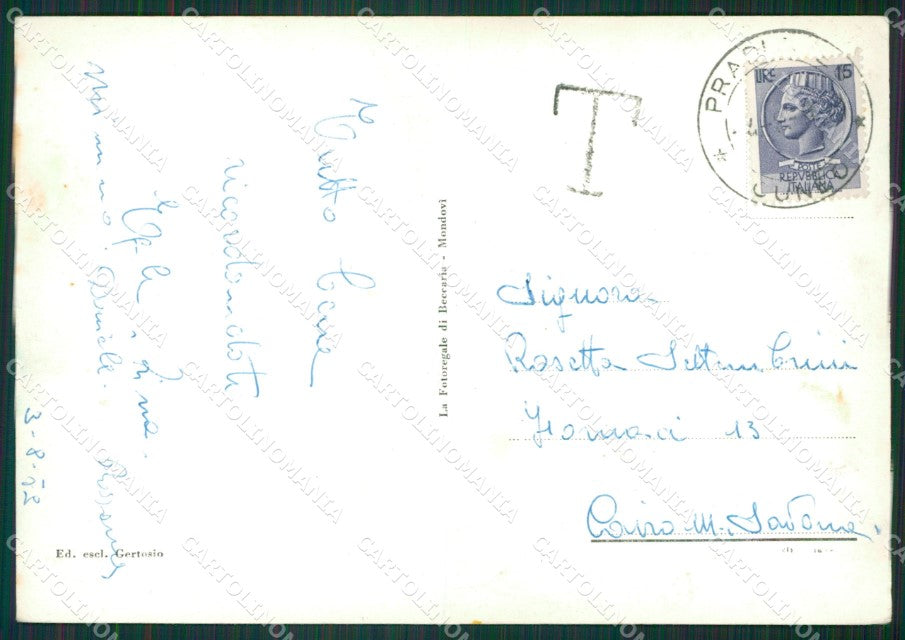 Tutto bene
ricordandoti
Mimmo. Daniele.
3-8-52
Ed. escl. Gertosio
La Fotoregale di Beccaria - Mondovì
T
PRAD
CUNEO
LIRE 15
POSTE
REPVBBLICA
ITALIANA
Signora
Rosetta Settembrini
Fornaci 13
Cairo M. Savona.
CARTOLINOMANIA